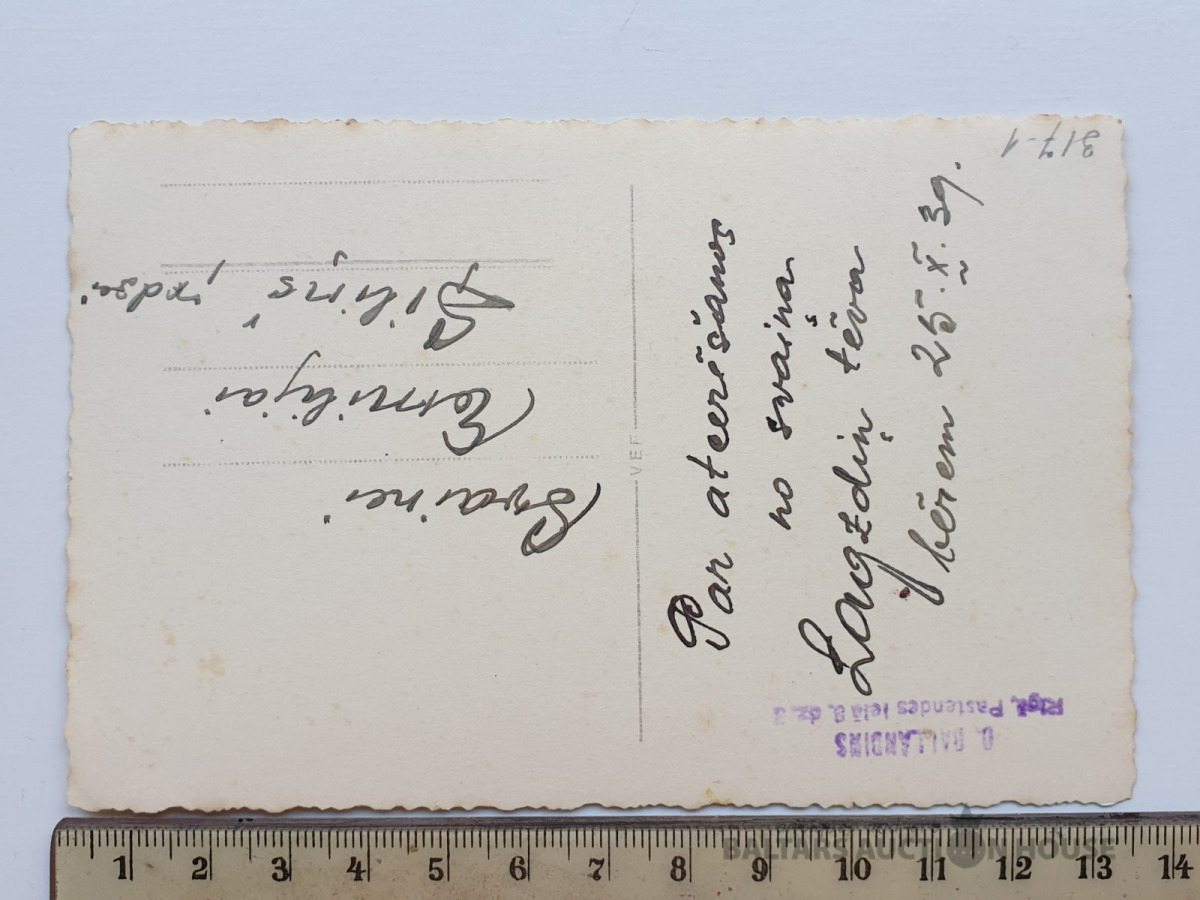 317-1
Par atcerēšanos
no svaiņa
Lagzdiņ tēva
bērēm 25.X.39.
Svainei
Emilijai
Siliņš
VEF
O. BALLARDINS
Rīgā, Pastendes ielā 8, dz. 3
BALTARS AUCTION HOUSE
1 2 3 4 5 6 7 8 9 10 11 12 13 14